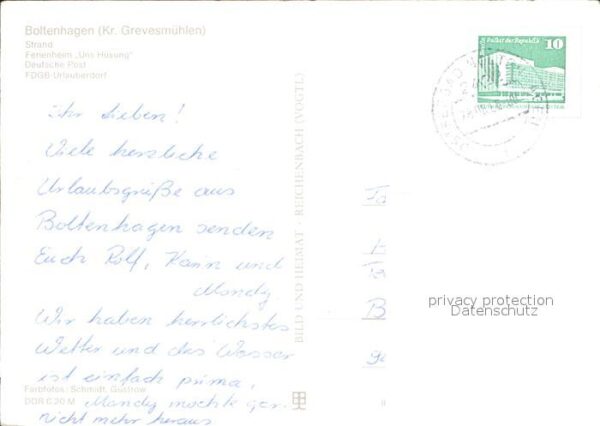 Boltenhagen (Kr. Grevesmühlen)
Strand
Ferienheim „Uns Hüsung"
Deutsche Post
FDGB-Urlauberdorf
Ihr Lieben!
Viele herzliche
Urlaubsgrüße aus
Boltenhagen senden
Euch Rolf, Karin und
Mandy.
Wir haben herrlichstes
Wetter und das Wasser
ist einfach prima,
Mandy möchte gar
nicht mehr heraus
Farbfotos: Schmidt, Güstrow
DDR C 20 M
BILD UND HEIMAT · REICHENBACH (VOGTL)
Palast der Republik
10
B
privacy protection
Datenschutz